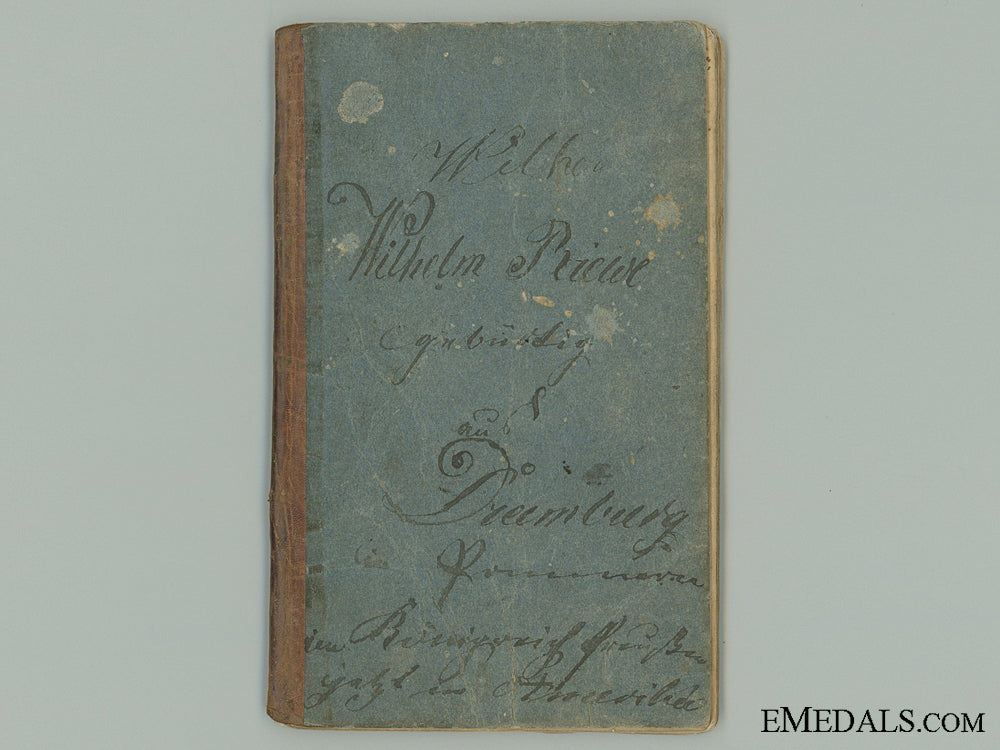 Wilhe
Wilhelm Riewe
gebürtig
aus
Dramburg
in Pommern
im Königreich Preußen
jetzt in Amerika
EMEDALS.COM